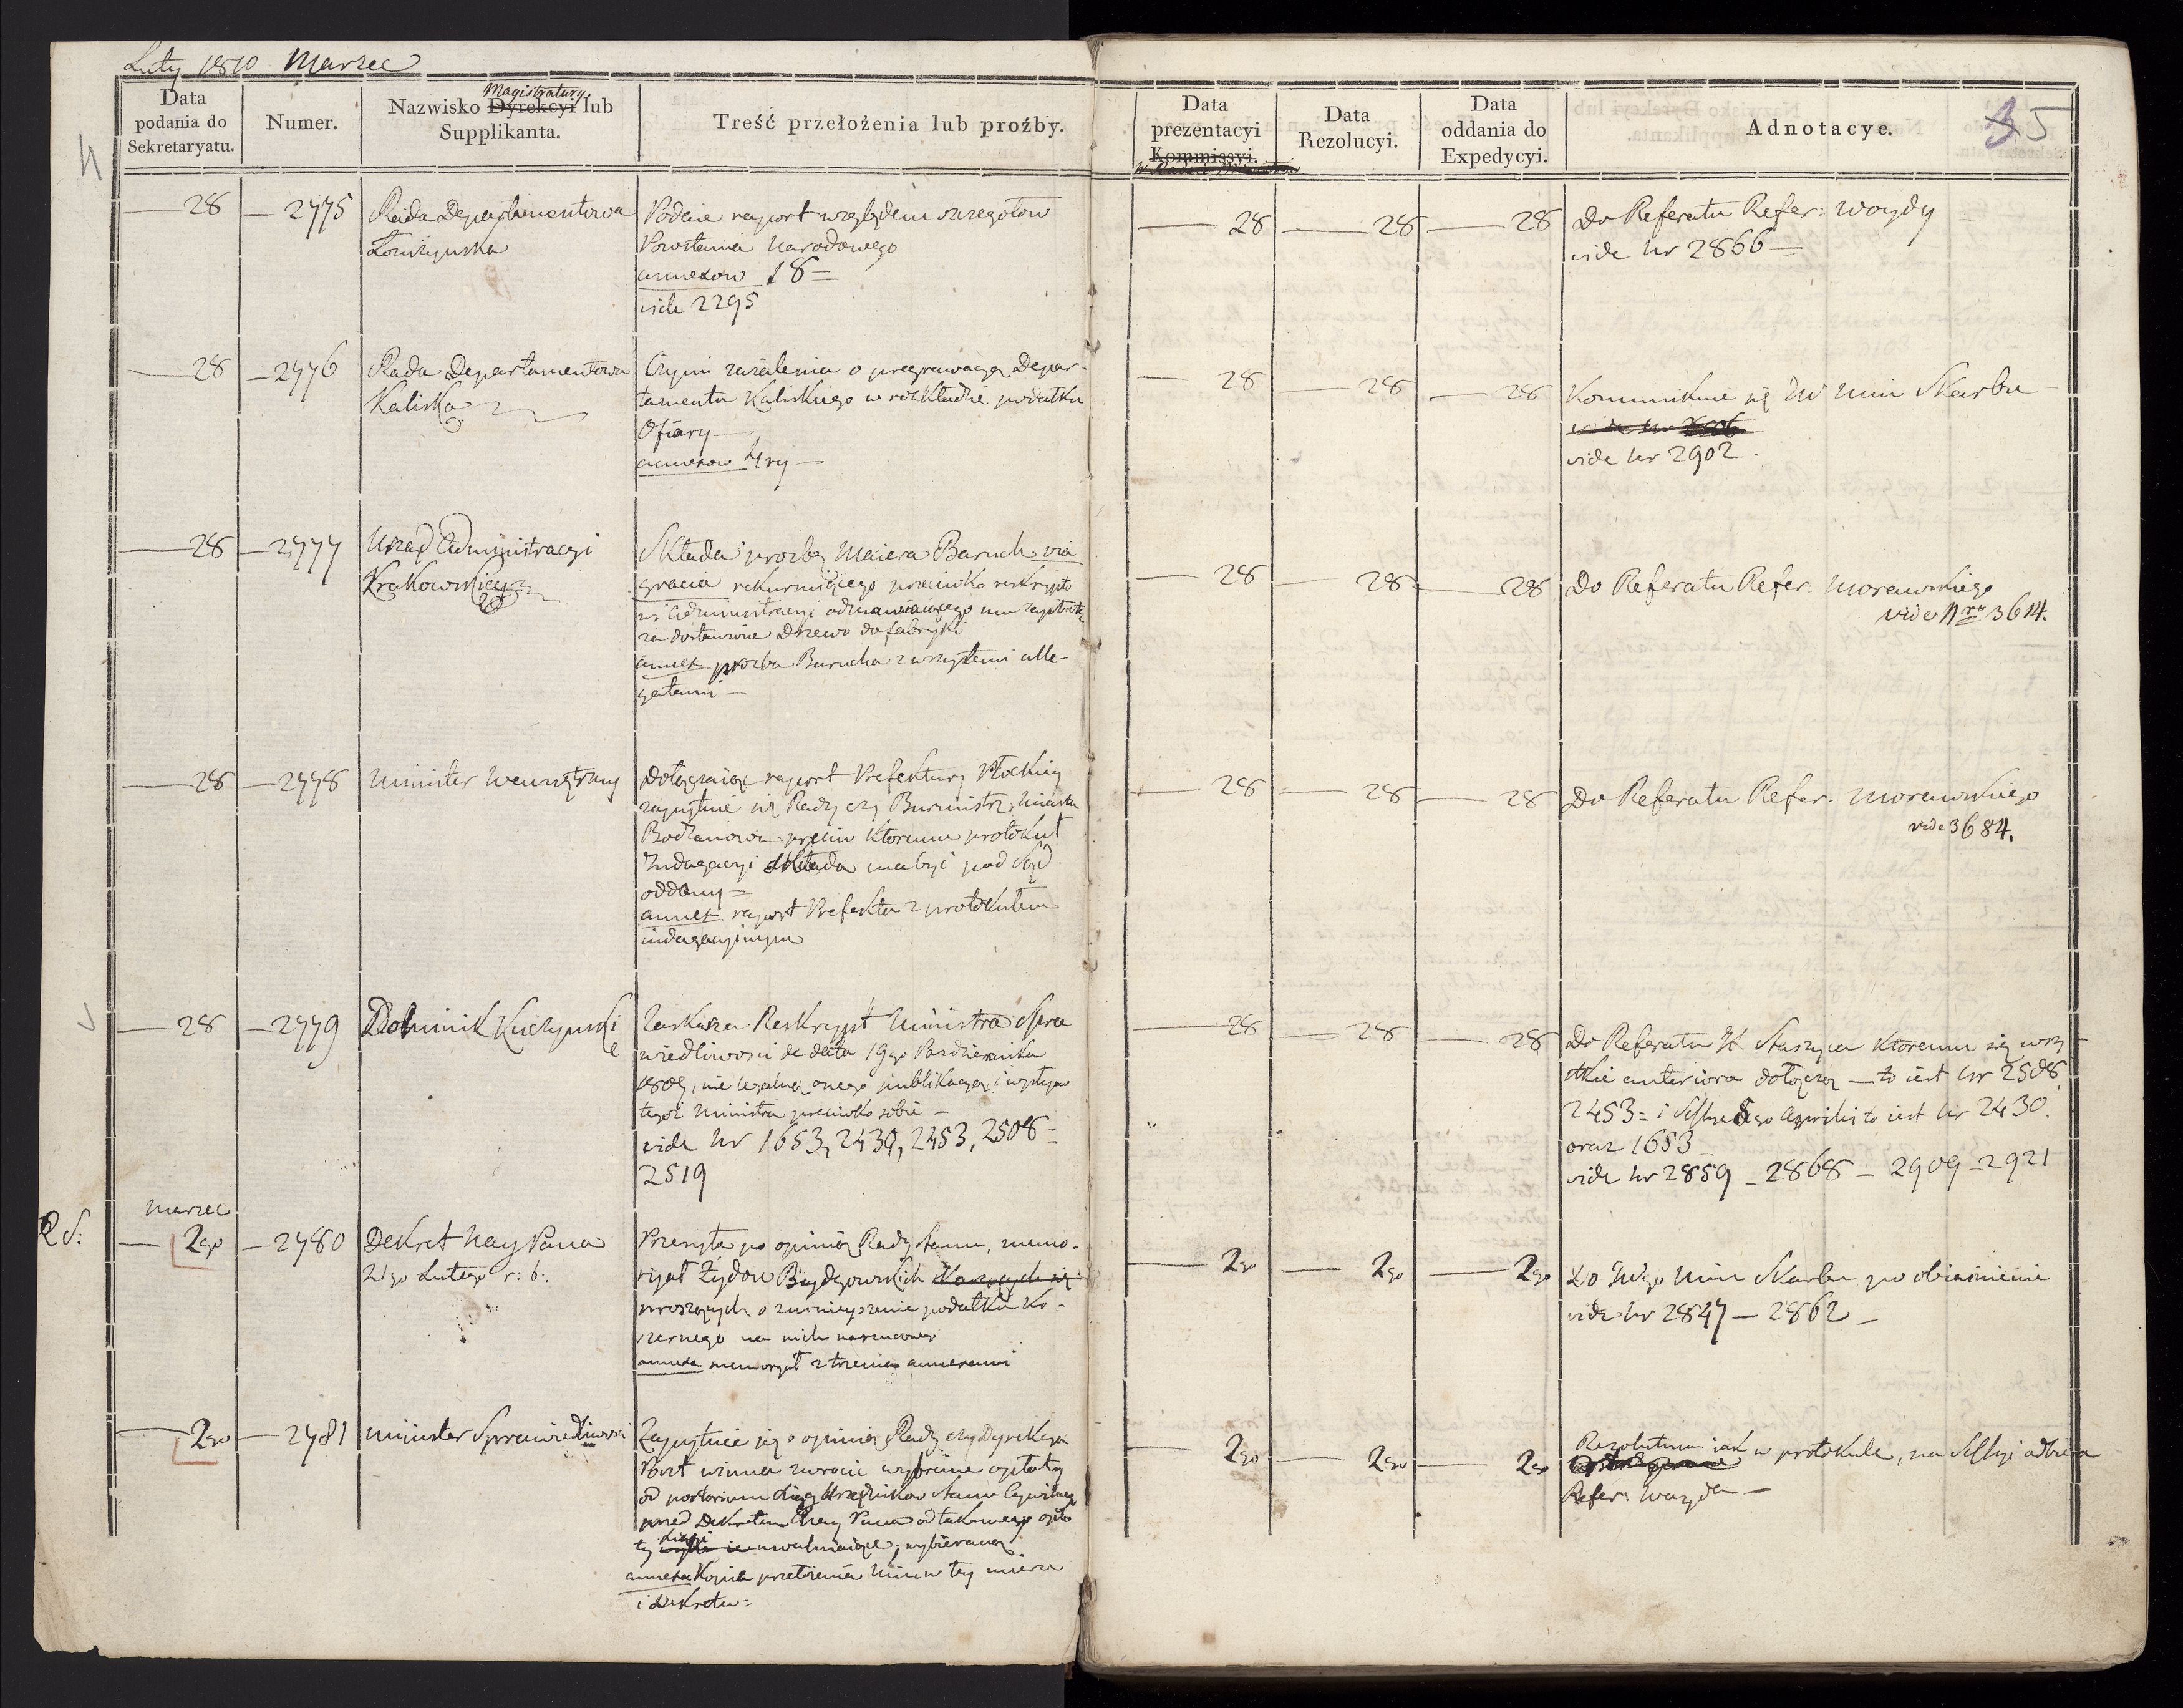 Luty 1810 Marzec
Data podania do Sekretaryatu.
Numer.
Magistratury
Nazwisko Dyrekcyi lub Supplikanta.
Treść przełożenia lub proźby.
Data prezentacyi Kommissyi.
Data Rezolucyi.
Data oddania do Expedycyi.
Adnotacye.
35
28 — 2775
Rada Departamentowa
Łomżyńska
Podaie raport względem szczegołow
Powstania Narodowego
annexow 18 =
vide 2295
28 — 28 — 28
Do Referatu Refer: Woydy
vide Nr 2866 —
28 — 2776
Rada Departamentowa
Kaliska
Czyni zażalenia o pregrawacyą Depar-
tamentu Kaliskiego w rozkładzie podatku
Ofiary —
annexow 4ry —
28 — 28 — 28
Kommunikuie się JW Min Skarbu
vide Nr 2902.
28 — 2777
Urząd Administracyi
Krakowskiey
Składa prozbę Maiera Baruch via
gracia rekurruiącego przeciwko reskrypto
wi Administracyi odmawiaiącego mu zapłatę
za dostawione Drzewo do fabryki
annex prozba Barucha z wszystkiemi alle-
gatami —
28 — 28 — 28
Do Referatu Refer: Morawskiego
vide Nro 3614.
28 — 2778
Minister Wewnętrzny
Dołączaiąc raport Prefektury Płockiey
zapytuie się Rady czy Burmistrz Miasta
Bodzanowa przeciw ktoremu protokuł
Indagacyi składa ma być pod Sąd
oddany =
annex raport Prefekta z protokułem
indagacyinym
28 — 28 — 28
Do Referatu Refer. Morawskiego
vide 3684.
28 — 2779
Dominik Kuczynski
Zaskarża Reskrypt Ministra Spra
wiedliwosci de dato 19go Pazdziernika
1809, nie legalną onego publikacyą i występw
tegoż Ministra przeciwko sobie —
vide Nr 1653, 2430, 2453, 2508 =
2519
28 — 28 — 28
Do Referatu JX Staszyca ktoremu się wszy
stkie anteriora dołączą — to iest Nr 2508.
2453 = i Sessyi 8go Aprilis to iest Nr 2430.
oraz 1653
vide Nr 2859 — 2868 — 2909 — 2921
Marzec
2go — 2780
Dekret Nay Pana
21go Lutego r: b:
Przesyła po opinią Rady Stanu, memo-
ryał Żydow
proszących o zmnieyszenie podatku ko-
szernego na nich
annexa memoryał z trzema annexami
2go — 2go — 2go
Do JWgo Min Skarbu po obiaśnienie
vide Nr 2847 — 2862 —
2go — 2781
Minister Sprawiedliwosci
Zapytuie się o opinią Rady czy Dyrekcya
Poczt winna zwrocić wybrane opłaty
od portorium Xiąg Urzędnikow Stanu Cywilnego
przed Dekretem Nay Pana od takowey opła
ty Xięgi uwalniaiące, wybierane
annexa Kopia przełożenia Minis w tey mierze
i Dekretu =
2go — 2go — 2go
Rezolutum iak w protokule, na Sessyi odbiera
Refer: Woyda —